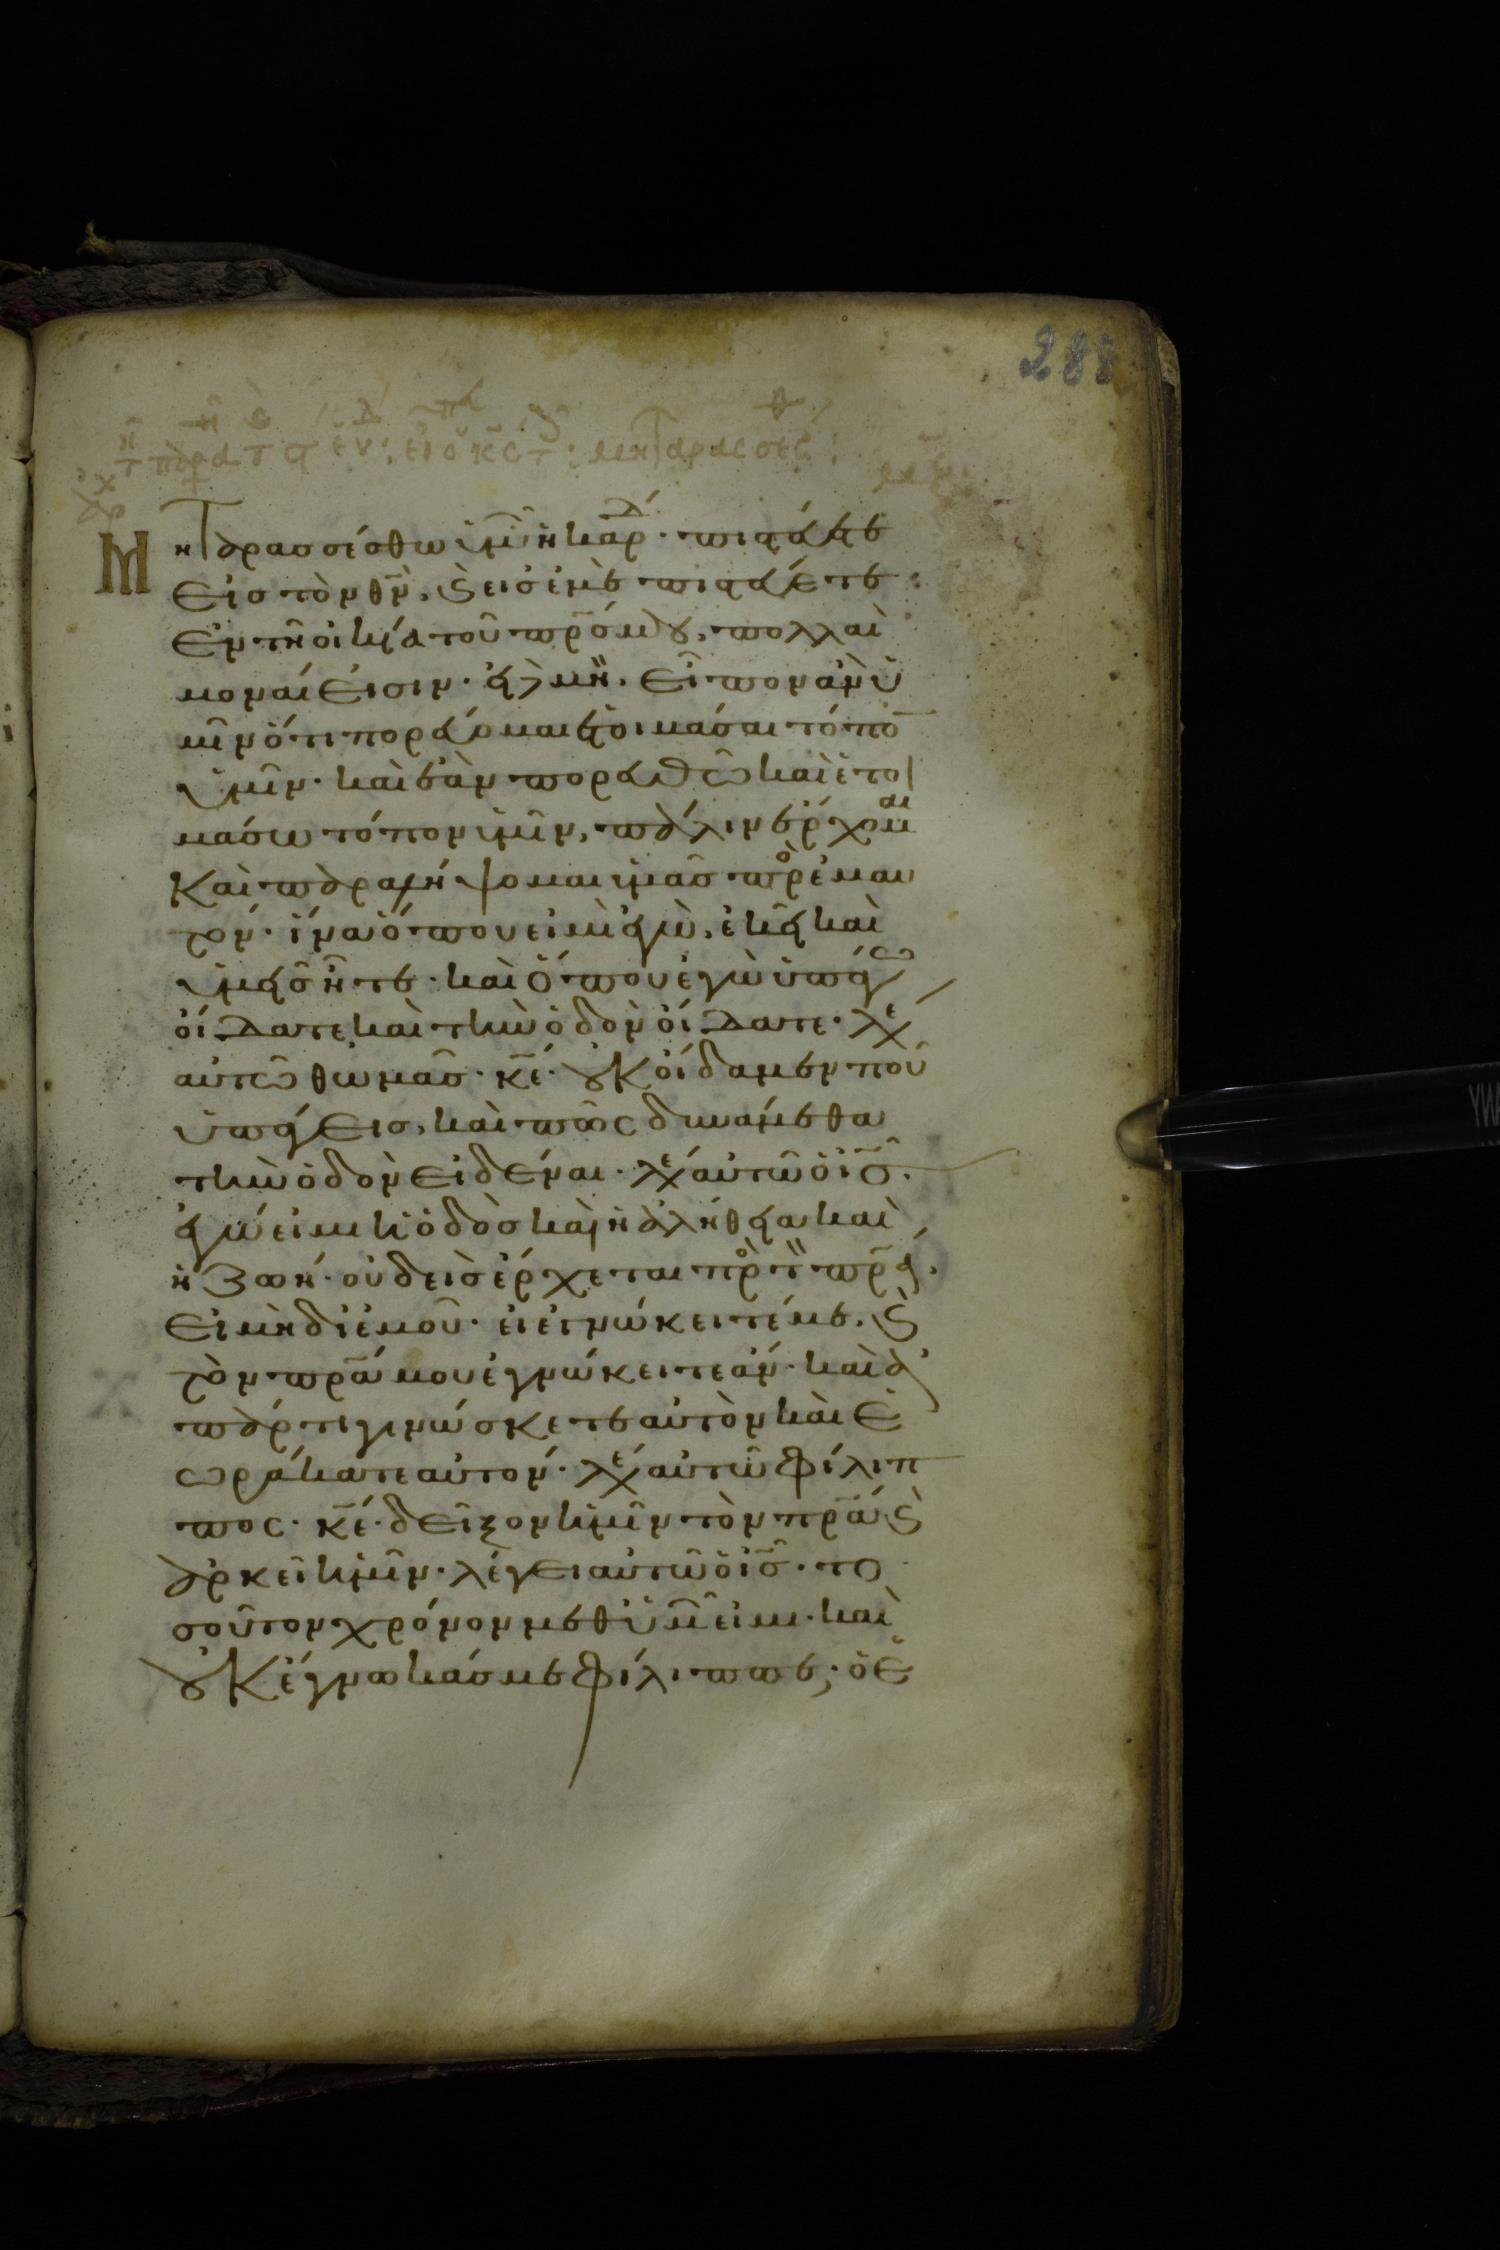 288
Μ
η ταρασσέσθω ὑμῶν ἡ καρδ· πιστεύετε
εἰς τὸν θν̄, ϗ εἰς ἐμὲ πιστεύετε:
ἐν τῆ οἰκία τοῦ πρ̄σ μου, πολλαὶ
μοναί εἰσιν· εἰ δὲ μὴ. εἶπον ἂν ὑ
μῖν ὅτι πορεύομαι ἑτοιμάσαι τόπο̄
ὑμῖν· καὶ ἐὰν πορευθῶ καὶ ἑτοι
μάσω τόπον ὑμῖν, πάλιν ἔρχομαι
Καὶ παραλήψομαι ὑμᾶς πρὸς ἐμαυ
τόν· ἵνα ὅπου εἰμὶ ἐγὼ, ἐκεῖ καὶ
ὑμεῖς ἦτε· καὶ ὅπου ἐγὼ ὑπάγω
οἴδατε καὶ τὴν ὁδὸν οἴδατε· λέγει
αὐτῶ θωμᾶς· κε̄· οὐκ οἴδαμεν ποῦ
ὑπάγεις, καὶ πῶς δυνάμεθα
τὴν ὁδὸν εἰδέναι· λέγει αὐτῶ ὁ ισ̄·
ἐγώ εἰμι ἡ ὁδὸς καὶ ἡ ἀλήθεια καὶ
ἡ ζωή· οὐδεὶς ἔρχεται πρὸς τὸν πρ̄α·
εἰ μὴ δι' ἐμοῦ· εἰ ἐγνώκειτέ με, ϗ
τὸν πρ̄α μου ἐγνώκειτε ἄν· καὶ ἀ
πάρτι γινώσκετε αὐτὸν καὶ ἑ
ωράκατε αὐτόν· λέγει αὐτῶ φίλιπ
πος· κε̄· δεῖξον ἡμῖν τὸν πρ̄α ϗ
ἀρκεῖ ἡμῖν· λέγει αὐτῶ ὁ ισ̄· το
σοῦτον χρόνον μεθ ὑμῶν εἰμι· καὶ
οὐκ ἔγνωκάς με φίλιππε; ὁ ἑ